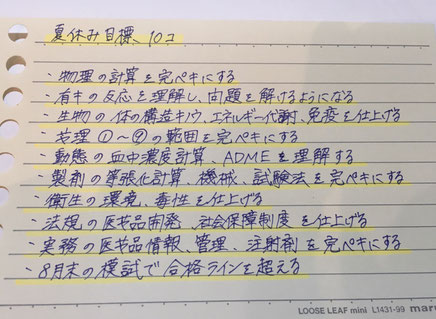 夏休み目標、10コ
・物理の計算を完ペキにする
・有キの反応を理解し、問題を解けるようになる
・生物の体の構造キノウ、エネルギー代謝、免疫を仕上げる
・薬理①〜④の範囲を完ペキにする
・動態の血中濃度計算、ADMEを理解する
・製剤の等張化計算、機械、試験法を完ペキにする
・衛生の環境、毒性を仕上げる
・法規の医薬品開発、社会保障制度を仕上げる
・実務の医薬品情報、管理、注射剤を完ペキにする
・8月末の模試で合格ラインを超える
LOOSE LEAF mini L1431-99 maru